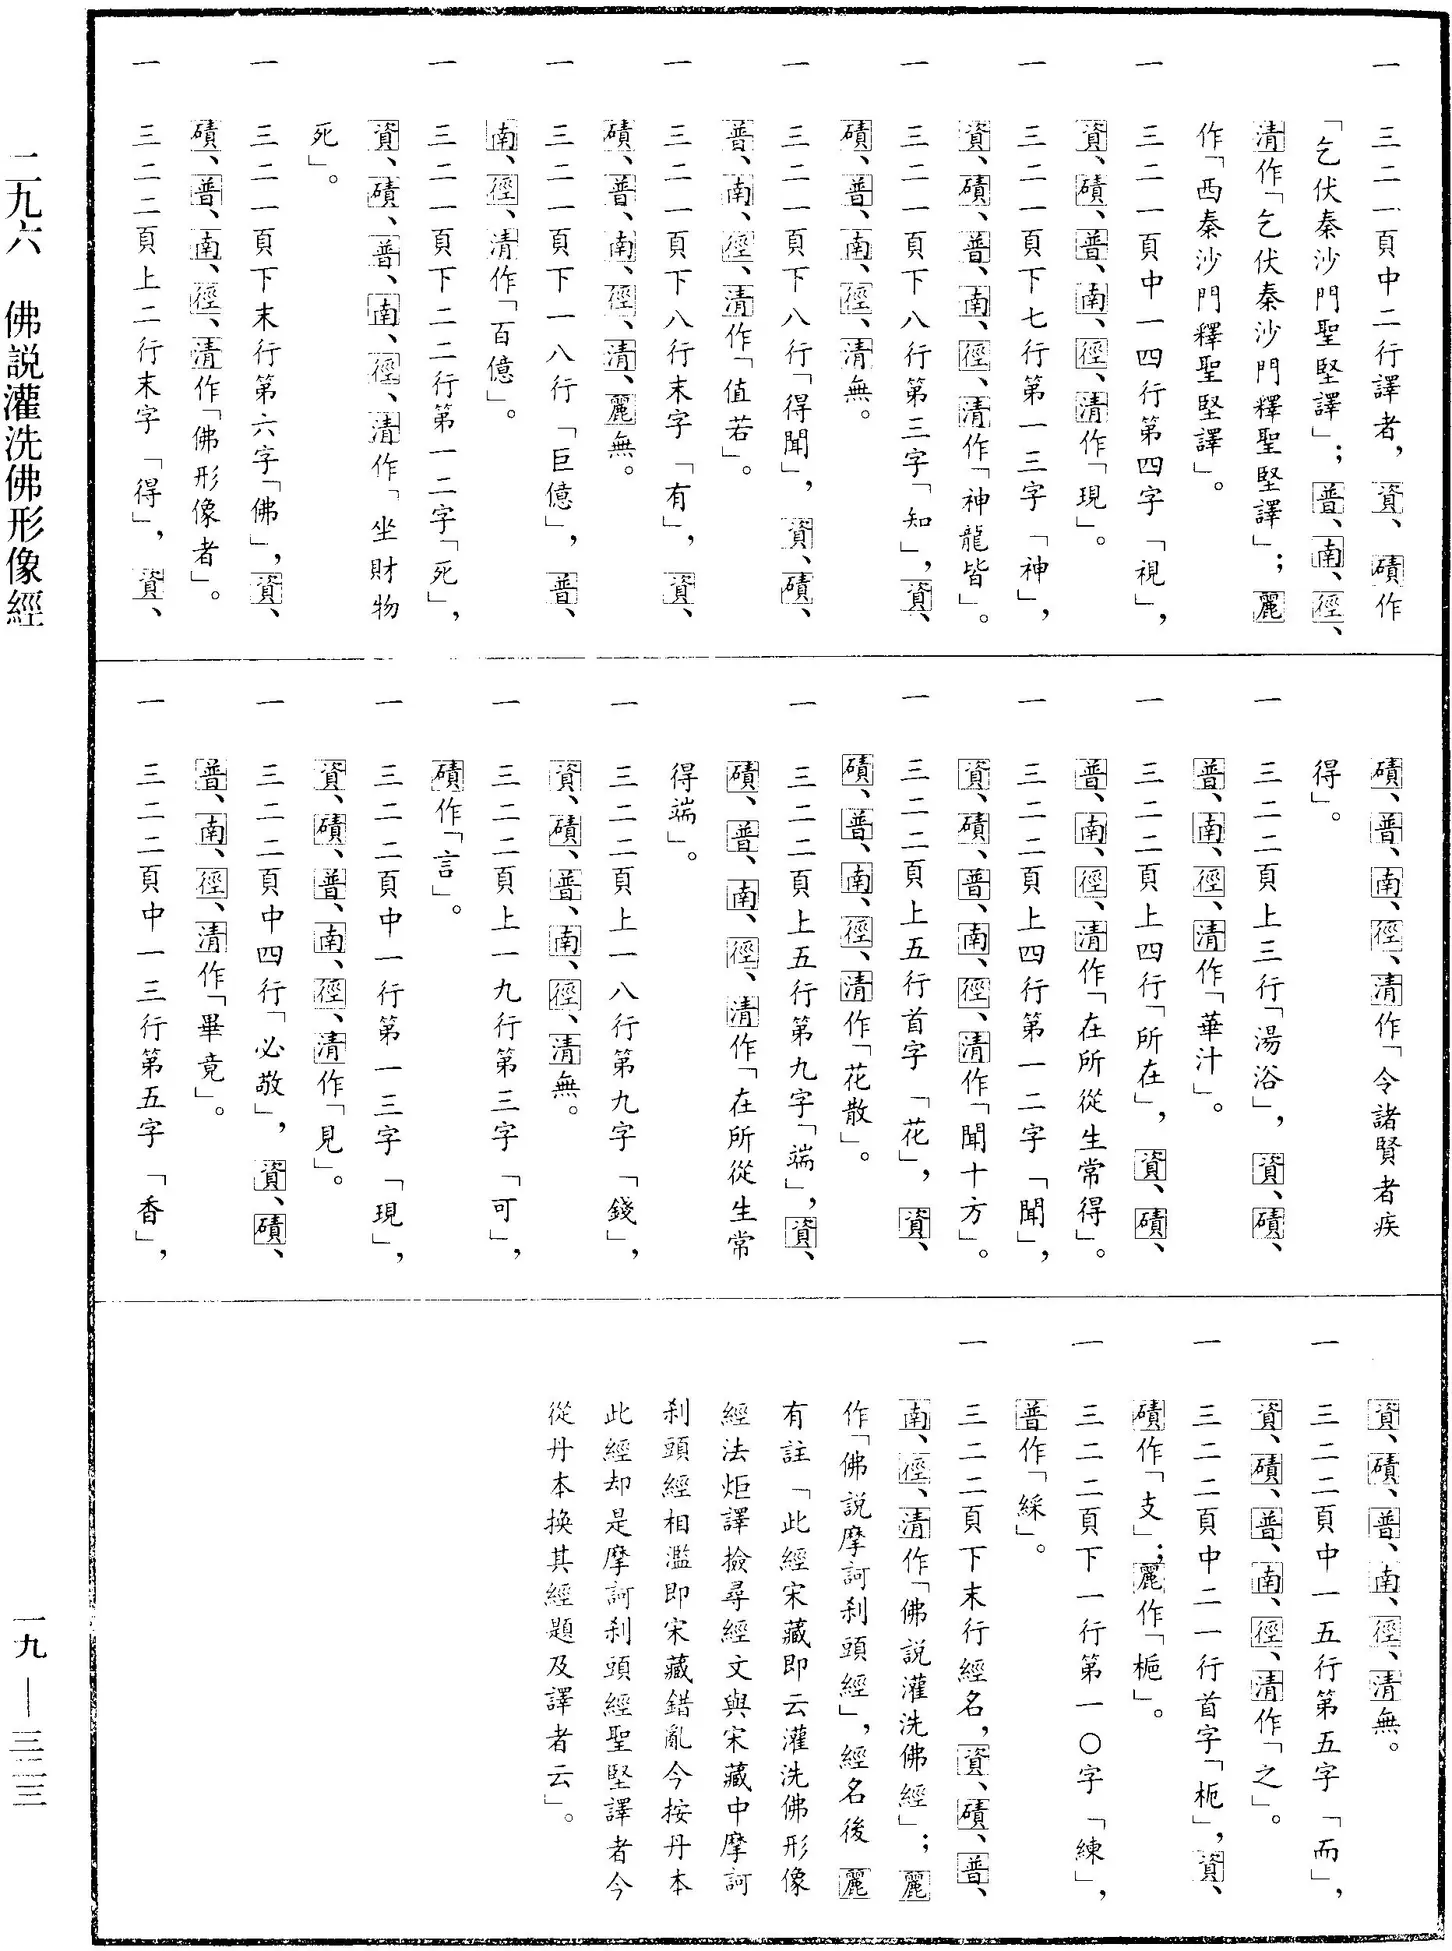 一　三二一頁中二行譯者，資、磧作
「乞伏秦沙門聖堅譯」；普、南、徑、
清作「乞伏秦沙門釋聖堅譯」；麗
作「西秦沙門釋聖堅譯」。
一　三二一頁中一四行第四字「視」，
資、磧、普、南、徑、清作「現」。
一　三二一頁下七行第一三字「神」，
資、磧、普、南、徑、清作「神龍皆」。
一　三二一頁下八行第三字「知」，資、
磧、普、南、徑、清無。
一　三二一頁下八行「得聞」，資、磧、
普、南、徑、清作「值若」。
一　三二一頁下八行末字「有」，資、
磧、普、南、徑、清、麗無。
一　三二一頁下一八行「巨億」，普、
南、徑、清作「百億」。
一　三二一頁下二二行第一二字「死」，
資、磧、普、南、徑、清作「坐財物
死」。
一　三二一頁下末行第六字「佛」，資、
磧、普、南、徑、清作「佛形像者」。
一　三二二頁上二行末字「得」，資、
磧、普、南、徑、清作「令諸賢者疾
得」。
一　三二二頁上三行「湯浴」，資、磧、
普、南、徑、清作「華汁」。
一　三二二頁上四行「所在」，資、磧、
普、南、徑、清作「在所從生常得」。
一　三二二頁上四行第一二字「聞」，
資、磧、普、南、徑、清作「聞十方」。
一　三二二頁上五行首字「花」，資、
磧、普、南、徑、清作「花散」。
一　三二二頁上五行第九字「端」，資、
磧、普、南、徑、清作「在所從生常
得端」。
一　三二二頁上一八行第九字「錢」，
資、磧、普、南、徑、清無。
一　三二二頁上一九行第三字「可」，
磧作「言」。
一　三二二頁中一行第一三字「現」，
資、磧、普、南、徑、清作「見」。
一　三二二頁中四行「必敬」，資、磧、
普、南、徑、清作「畢竟」。
一　三二二頁中一三行第五字「香」，
資、磧、普、南、徑、清無。
一　三二二頁中一五行第五字「而」，
資、磧、普、南、徑、清作「之」。
一　三二二頁中二一行首字「栀」，資、
磧作「支」；麗作「梔」。
一　三二二頁下一行第一〇字「練」，
普作「綵」。
一　三二二頁下末行經名，資、磧、普、
南、徑、清作「佛說灌洗佛經」；麗
作「佛說摩訶刹頭經」，經名後麗
有註「此經宋藏即云灌洗佛形像
經法炬譯撿尋經文與宋藏中摩訶
刹頭經相濫即宋藏錯亂今按丹本
此經却是摩訶刹頭經聖堅譯者今
從丹本換其經題及譯者云」。
二九六　佛説灌洗佛形像經
一九—三二三